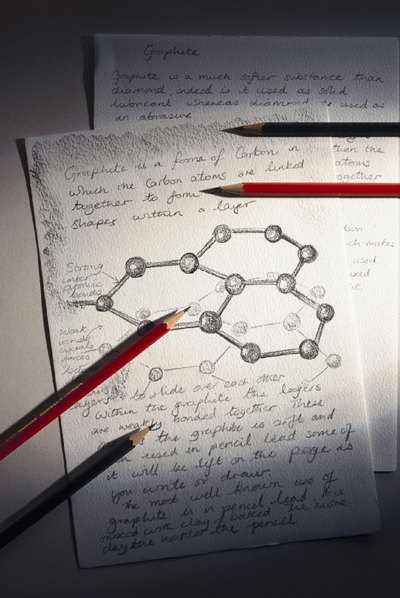 Graphite
Graphite is a much softer substance than
diamond, indeed is it used as solid
lubricant whereas diamond is used as
an abrasive
Graphite is a form of Carbon in
which the Carbon atoms are linked
together to form
shapes within a layer
than the
atoms
together
ch makes
used
Strong
layer
bonds
Weak
layers to slide over each other
Within the graphite the layers
are weakly bonded together. These
the graphite is soft and
when used in pencil lead some of
it will be left on the page as
you write or draw.
The most well known use of
graphite is in pencil lead. It is
mixed with clay & baked. The more
clay the harder the pencil